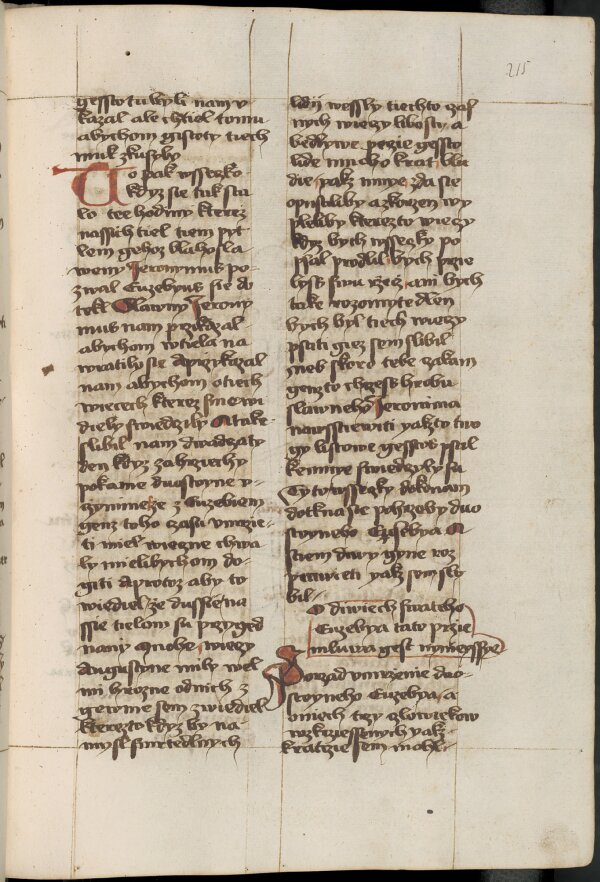 215
gessto tu byli nam v
kazal ale chtiel tomu
abychom gistoty tiech
muk zkusyly
To pak wssecko
kdyz sie tak sta
lo tee hodiny kterez
nassich tiel tiem pyt
lem gehoz blahosla
weny Jeronymus po
zwal Euzebyus sie do
tekl Slawny Jerony
mus nam przikazal
abychom w tiela na
wratily sie A przykazal
nam abychom o tiech
wiecech kterez sme wi
diely swiedczily A take
slibil nam dwadczaty
den kdyz za hrziechy
pokanie duostoyne v
czynimeze z Euzebiem
genz toho czasu vmrzie
ti miel wieczne chwa
ly mielibychom do
giti A protoz aby to
wiediel ze dussie na
ssie tielom su przyged
nany Mnohe wieczy
Augustyne mily wel
mi hrozne od nich z
gewnie sem zwiediel
kterezto kdyz by na
mysl smrtedlnych
lidij wessly tiechto zal
nych wieczy libosti a
bedliwe peczie gessto
lide mnoho krat blu
die yakz mnye zda sie
opustiliby a z korzen wy
pleliby kterezto wieczy
kdyz bych wsseczky po
psal prodlil bych prze
lyss swu rzecz ani bych
take rozomyte dluzen
bych byl tiech wieczy
psati giez sem slibil
Neb skoro tebe czakam
genzto chczess hrobu
slawneho Jeronima
nawsstiewiti yakzto two
gi listowe gesstos psal
ke mnye swiedczyly su
Ty to wsseczky dokonam
dotkna sie pohrzeby duo
stoyneho Euzebya A
s tiem diwy gyne roz
prawieti yakz sem sly
bil
O diwiech swateho
Euzebya tato przie
mluwa gest nynieyssye
Porzad vmrzenie duo
stoyneho Euzebya a
o niech trzy czlowiekow
wzkrziessenych yakz
kratcze sem mohl